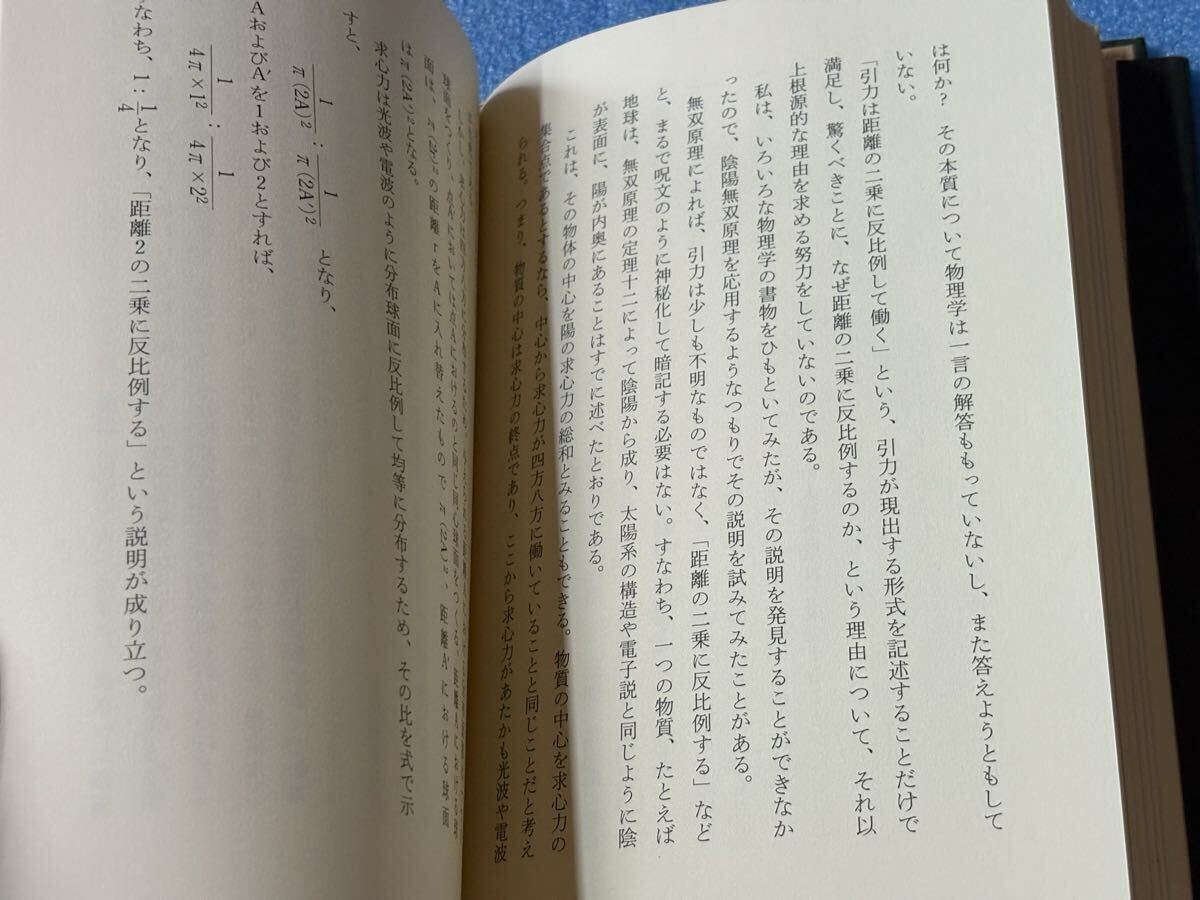 は何か？　その本質について物理学は一言の解答ももっていないし、また答えようともして
いない。
「引力は距離の二乗に反比例して働く」という、引力が現出する形式を記述することだけで
満足し、驚くべきことに、なぜ距離の二乗に反比例するのか、という理由について、それ以
上根源的な理由を求める努力をしていないのである。
私は、いろいろな物理学の書物をひもといてみたが、その説明を発見することができなか
ったので、陰陽無双原理を応用するようなつもりでその説明を試みてみたことがある。
無双原理によれば、引力は少しも不明なものではなく、「距離の二乗に反比例する」など
と、まるで呪文のように神秘化して暗記する必要はない。すなわち、一つの物質、たとえば
地球は、無双原理の定理十二によって陰陽から成り、太陽系の構造や電子説と同じように陰
が表面に、陽が内奥にあることはすでに述べたとおりである。
これは、その物体の中心を陽の求心力の総和とみることもできる。物質の中心を求心力の
集合点であるとするなら、中心から求心力が四方八方に働いていることと同じことだと考え
られる。つまり、物質の中心は求心力の終点であり、ここから求心力があたかも光波や電波
球面をつくり、点A′においては点Aにおけるのと同じ同心球面をつくる。距離Aにおける球
面は、の距離rをAに入れ替えたもので、距離A′における球面
はπ(2A′)²となる。
求心力は光波や電波のように分布球面に反比例して均等に分布するため、その比を式で示
すと、
1/π(2A)² : 1/π(2A′)²　となり、
AおよびA′を1および2とすれば、
1/4π×1² : 1/4π×2²
なわち、1:1/4となり、「距離2の二乗に反比例する」という説明が成り立つ。